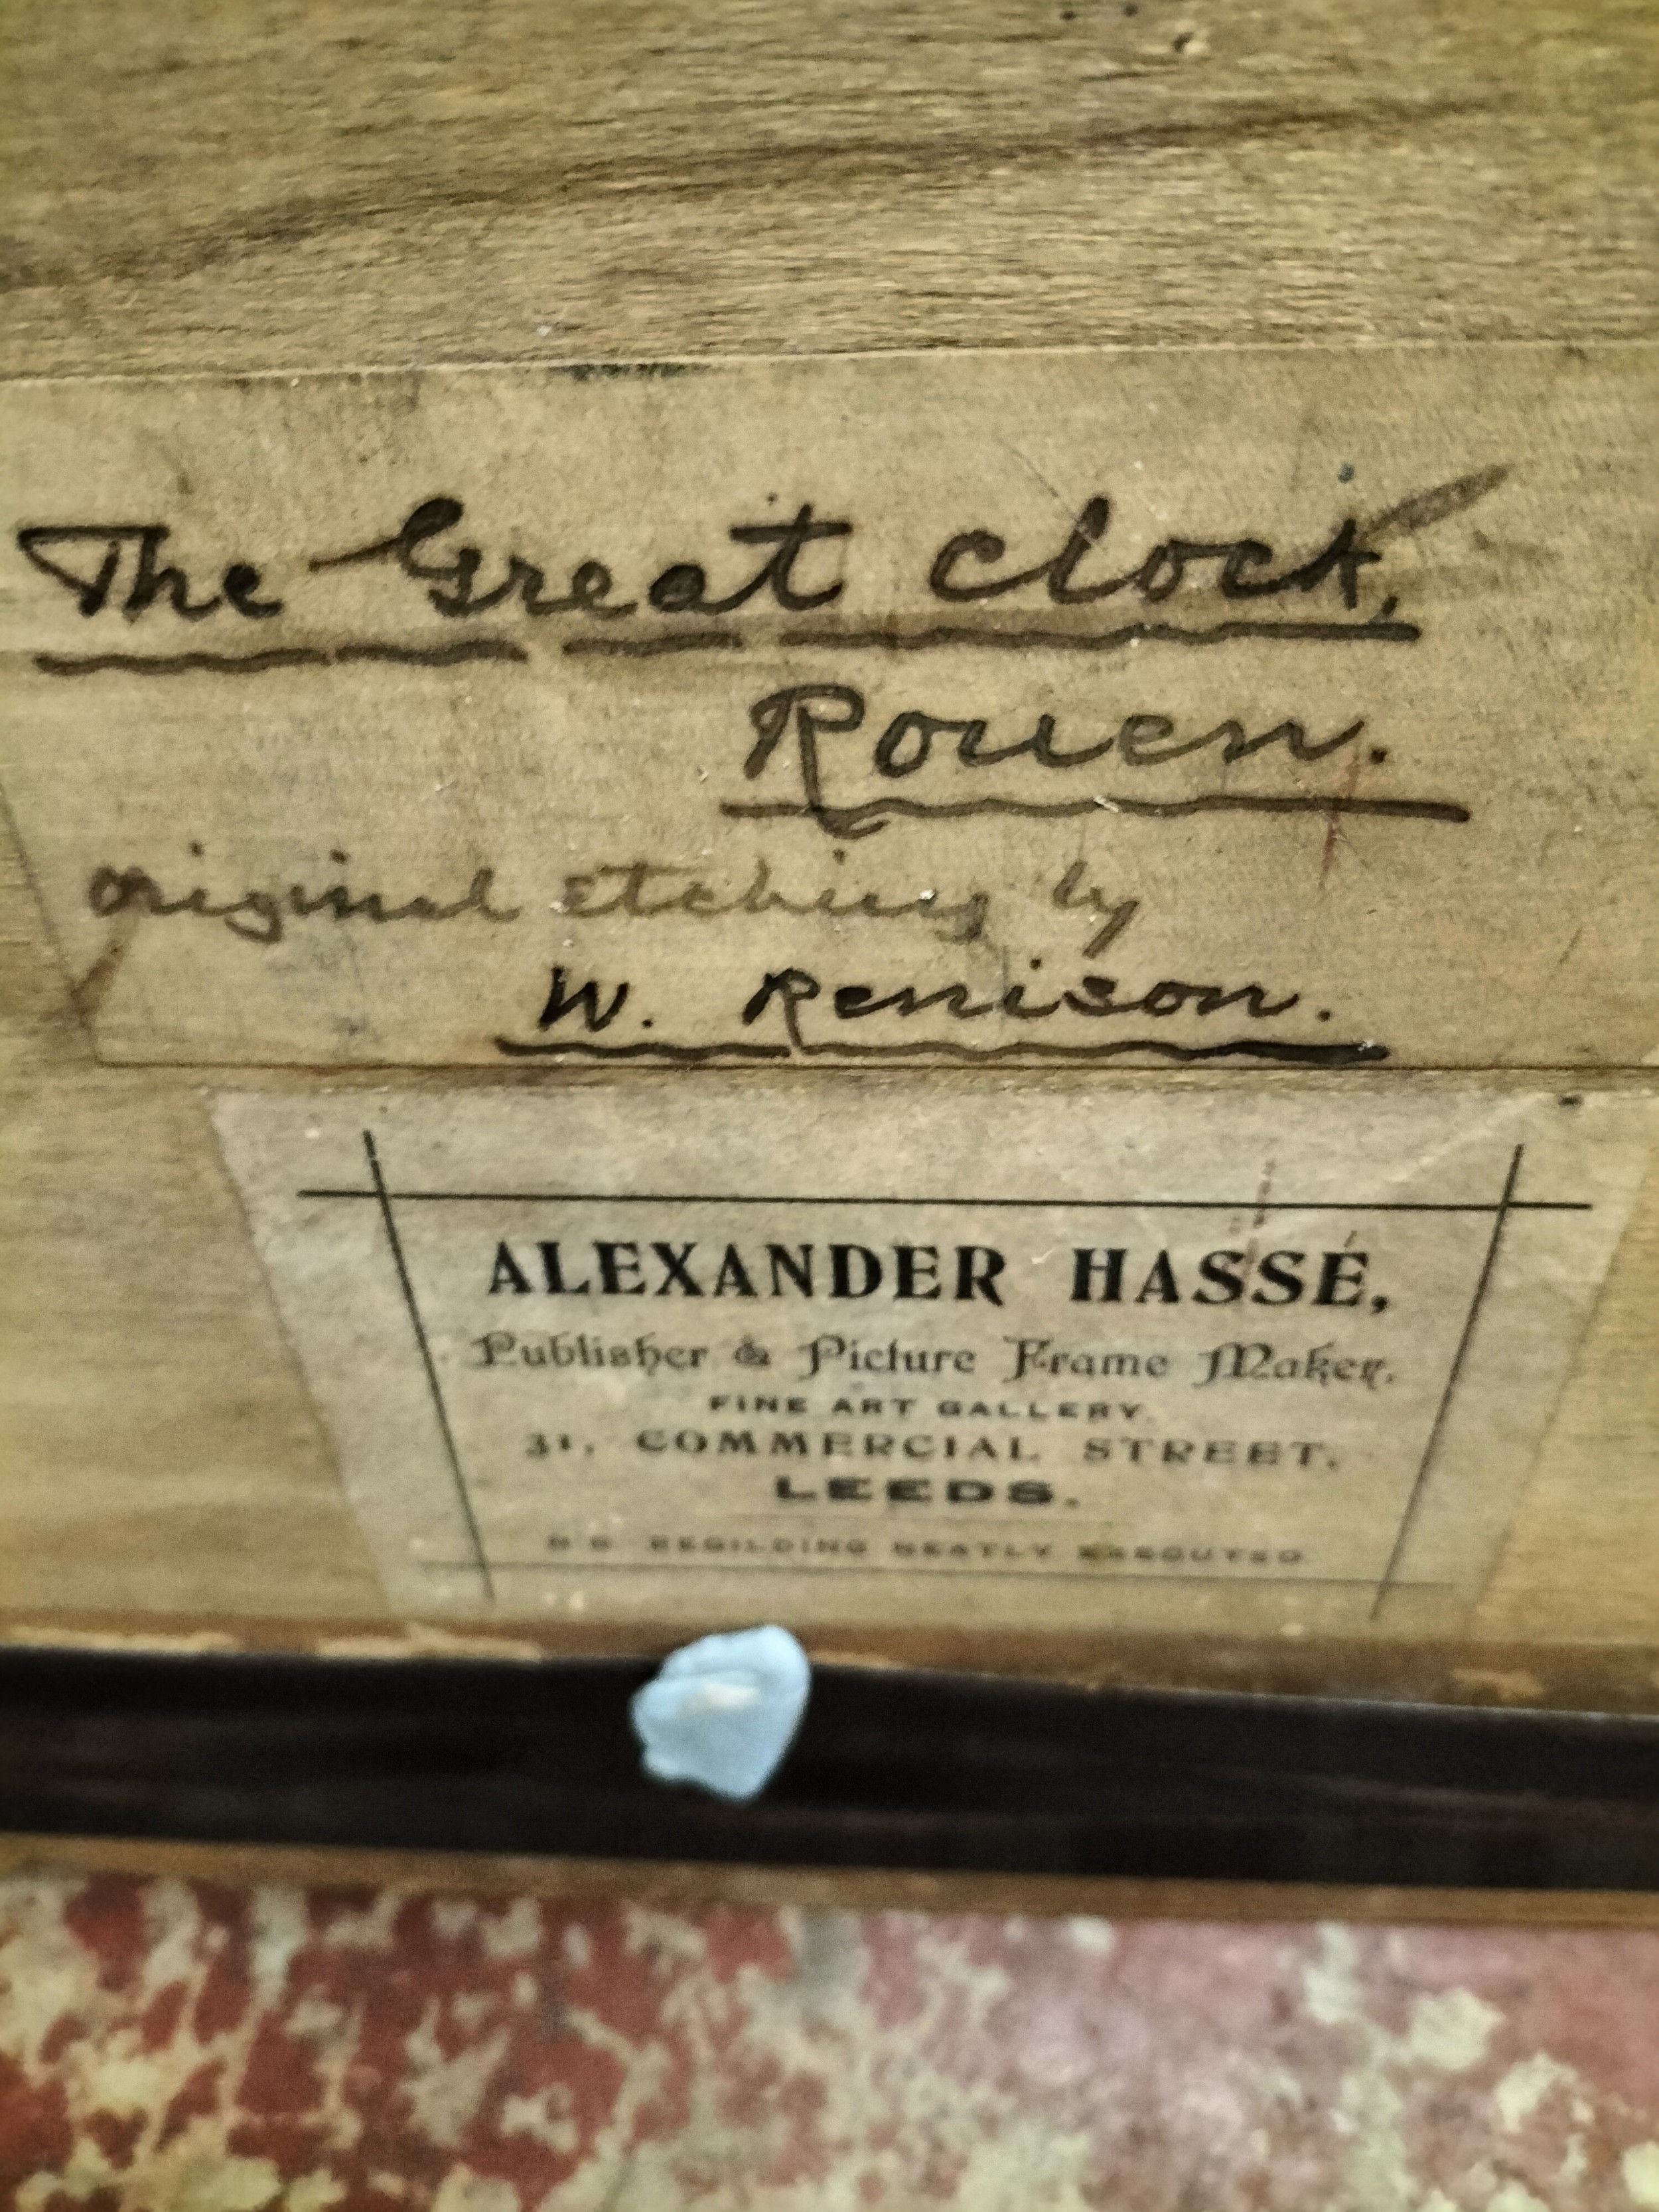 The Great Clock,
Rouen.
original etching by
W. Renison.
ALEXANDER HASSÉ,
Publisher & Picture Frame Maker.
FINE ART GALLERY,
31, COMMERCIAL STREET,
LEEDS.
N.B. REGILDING NEATLY EXECUTED